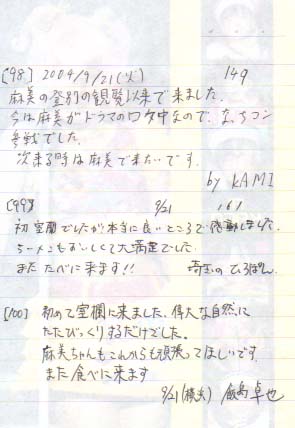 [98] 2004/9/21(火) 149
麻美の登別の観覧以来で来ました。
今は麻美がドラマのロケ中なので、なっちコン
参戦でした。
次来る時は麻美で来たいです。
by KAMI
[99] 9/21 161
初室蘭でしたが本当に良いところで感動しました。
らーめんもおいしくて大満足でした。
また たべに来ます!!
埼玉の ひろぽん。
[100] 初めて室欄に来ました。偉大な自然に
ただびっくりするだけでした。
麻美ちゃんもこれからも頑張ってほしいです
また食べに来ます
9/21(横浜) 飯島 卓也